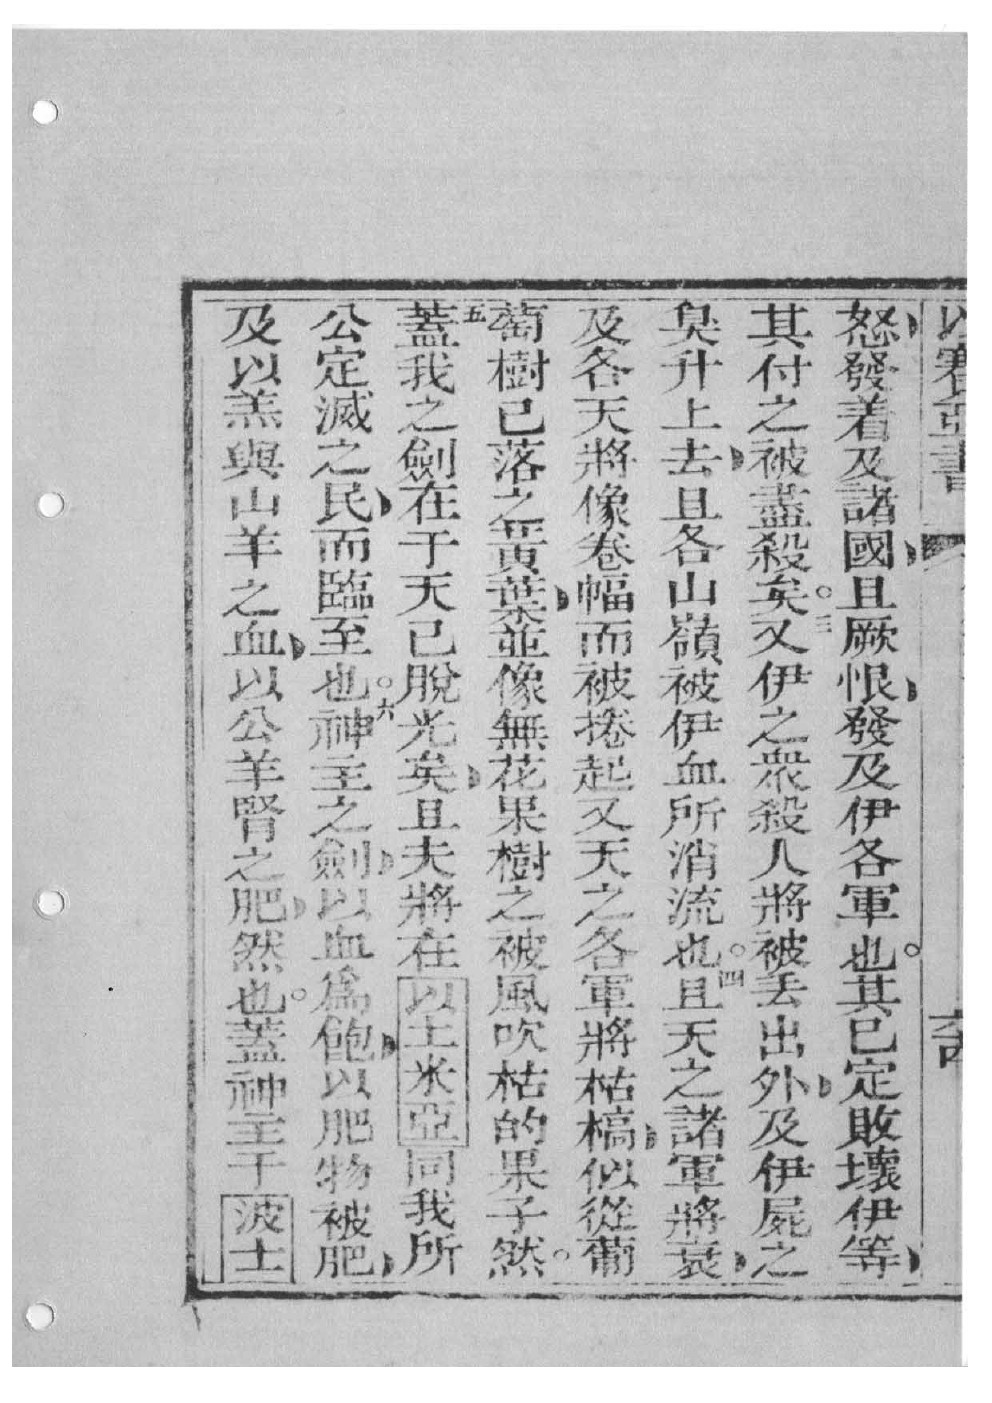 以賽亞書
怒發着及諸國且厥恨發及伊各軍也。其已定敗壞伊等
其付之被盡殺矣。三又伊之衆殺人將被丢出外及伊屍之
臭升上去且各山嶺被伊血所消流也。四且天之諸軍將衰
及各天將像卷幅而被捲起又天之各軍將枯槁似從葡
萄樹已落之黃葉並像無花果樹之被風吹枯的果子然。
五蓋我之劍在于天已脫光矣且夫將在以土米亞同我所
公定滅之民而臨至也。六神主之劍以血爲飽以肥物被肥
及以羔與山羊之血以公羊腎之肥然也。蓋神主于波士